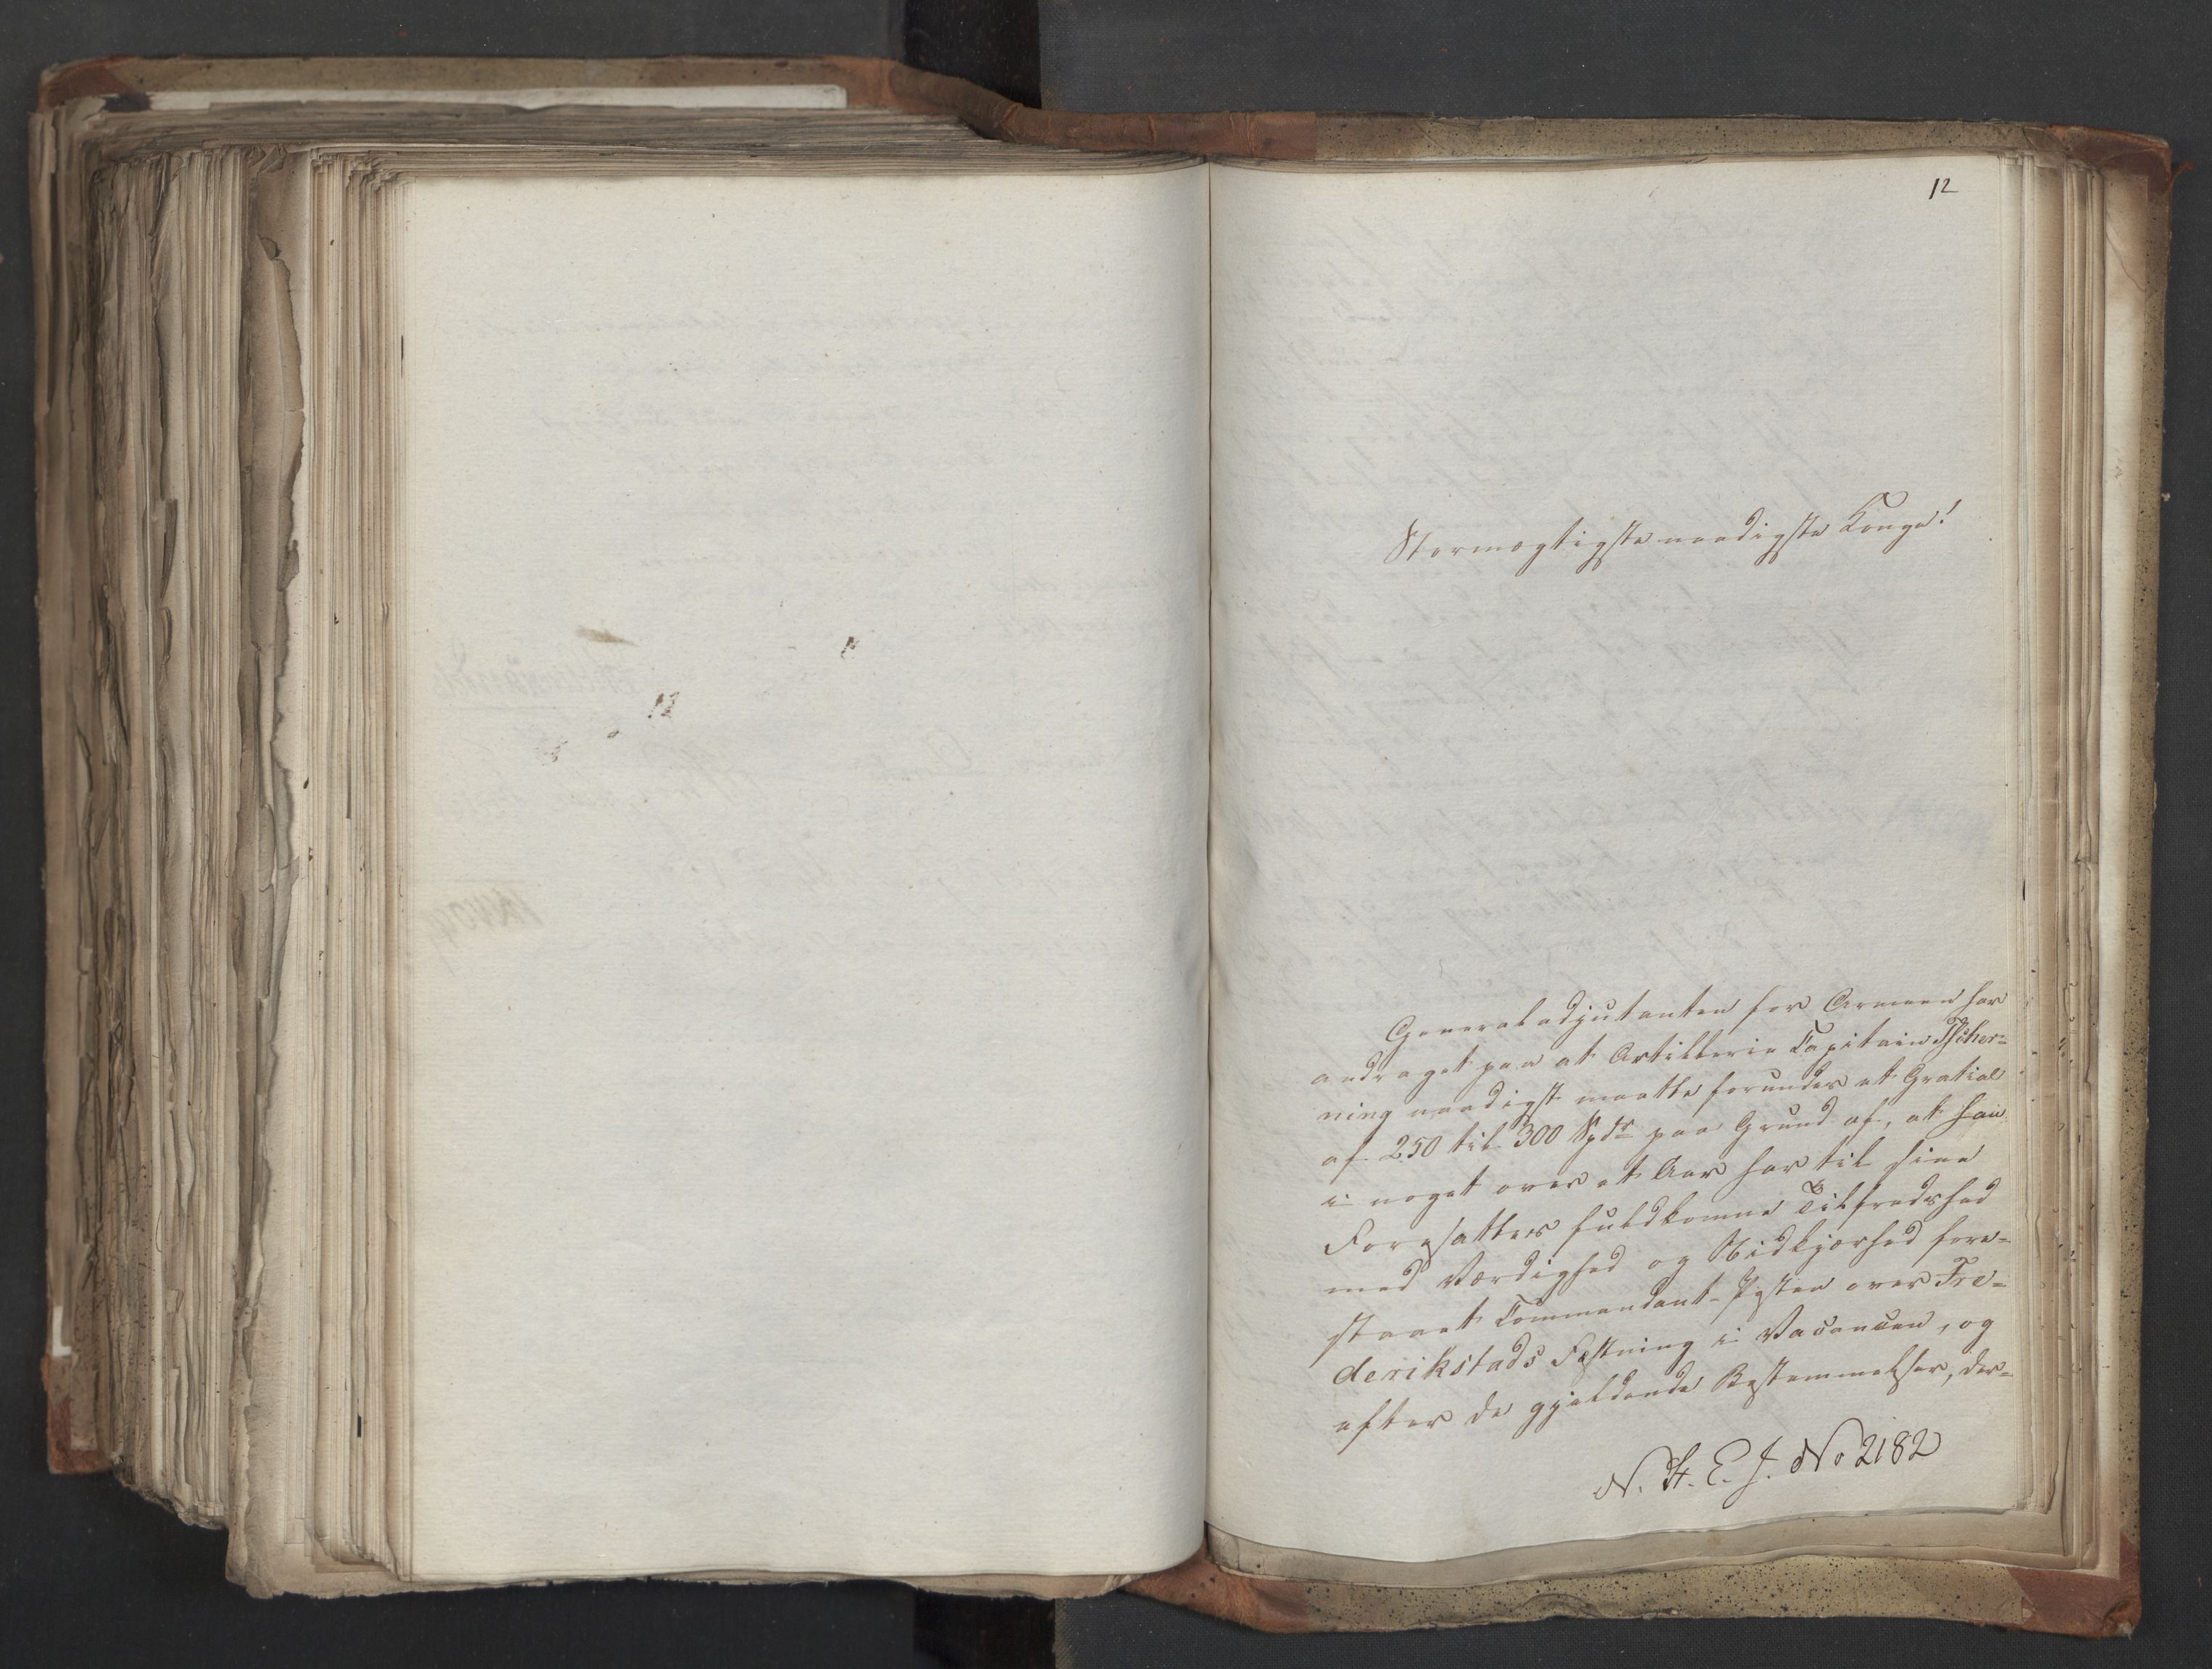 12
Stormægtigste naadigste Konge!
Generaladjutanten for Armeen har
andraget paa at Artillerie Capitain Tscher-
ning naadigst maatte forundes et Gratiale
af 250 til 300 Spdr paa Grund af, at han
i noget over et Aar har til sine
Foresattes fuldkomne Tilfredshed
med Værdighed og Nidkjærhed fore-
staaet Commandant-Posten over Fre-
derikstads Fæstning i Vacancen, og
efter de gjældende Bestemmelser, der-
N. H. E. J. No 2182